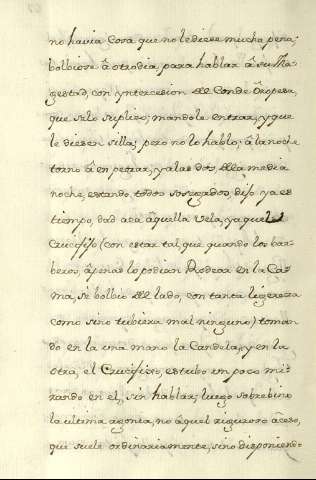 no havia Cosa que no le diese mucha pena;
bolbiose â otro dia, para hablar â su Ma-
gestad, con yntercesion del Conde Ôropesa,
que se lo suplico; mandole entrar, y que
le diesen silla; pero no lo hablo; â la noche
torno â en pezrar, y a las dos de la media
noche, estando todos sosegados, dijo ya es
tiempo, dad aca âquella Vela, ya quel
Crucifijo (con estar tal, que quando los bar-
beros, âpenas lo podian Rodear en la Ca-
ma, se bolbio del lado, con tanta ligereza
como sino tubiera mal ninguno) toman-
do en la una mano la Candela, y en la
otra, el Crucifijo, estubo un poco mi-
rando en el, sin hablar; luego sobrebino
la ultima agonia, no âquel riguroso âceso,
que suele ordinariamente, sino disponiend-